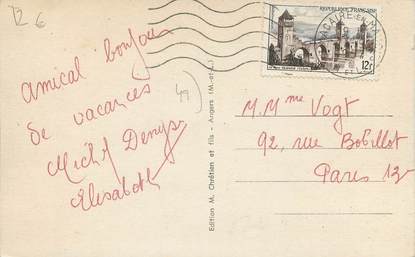 12 €
amical bonjour
de vacances
Michel Denyse
Elisabeth
49
Edition M. Chrétien et fils - Angers (M.-et-L.)
REPUBLIQUE FRANÇAISE
12F
M. Mme Vogt
92, rue Bobillot
Paris 13